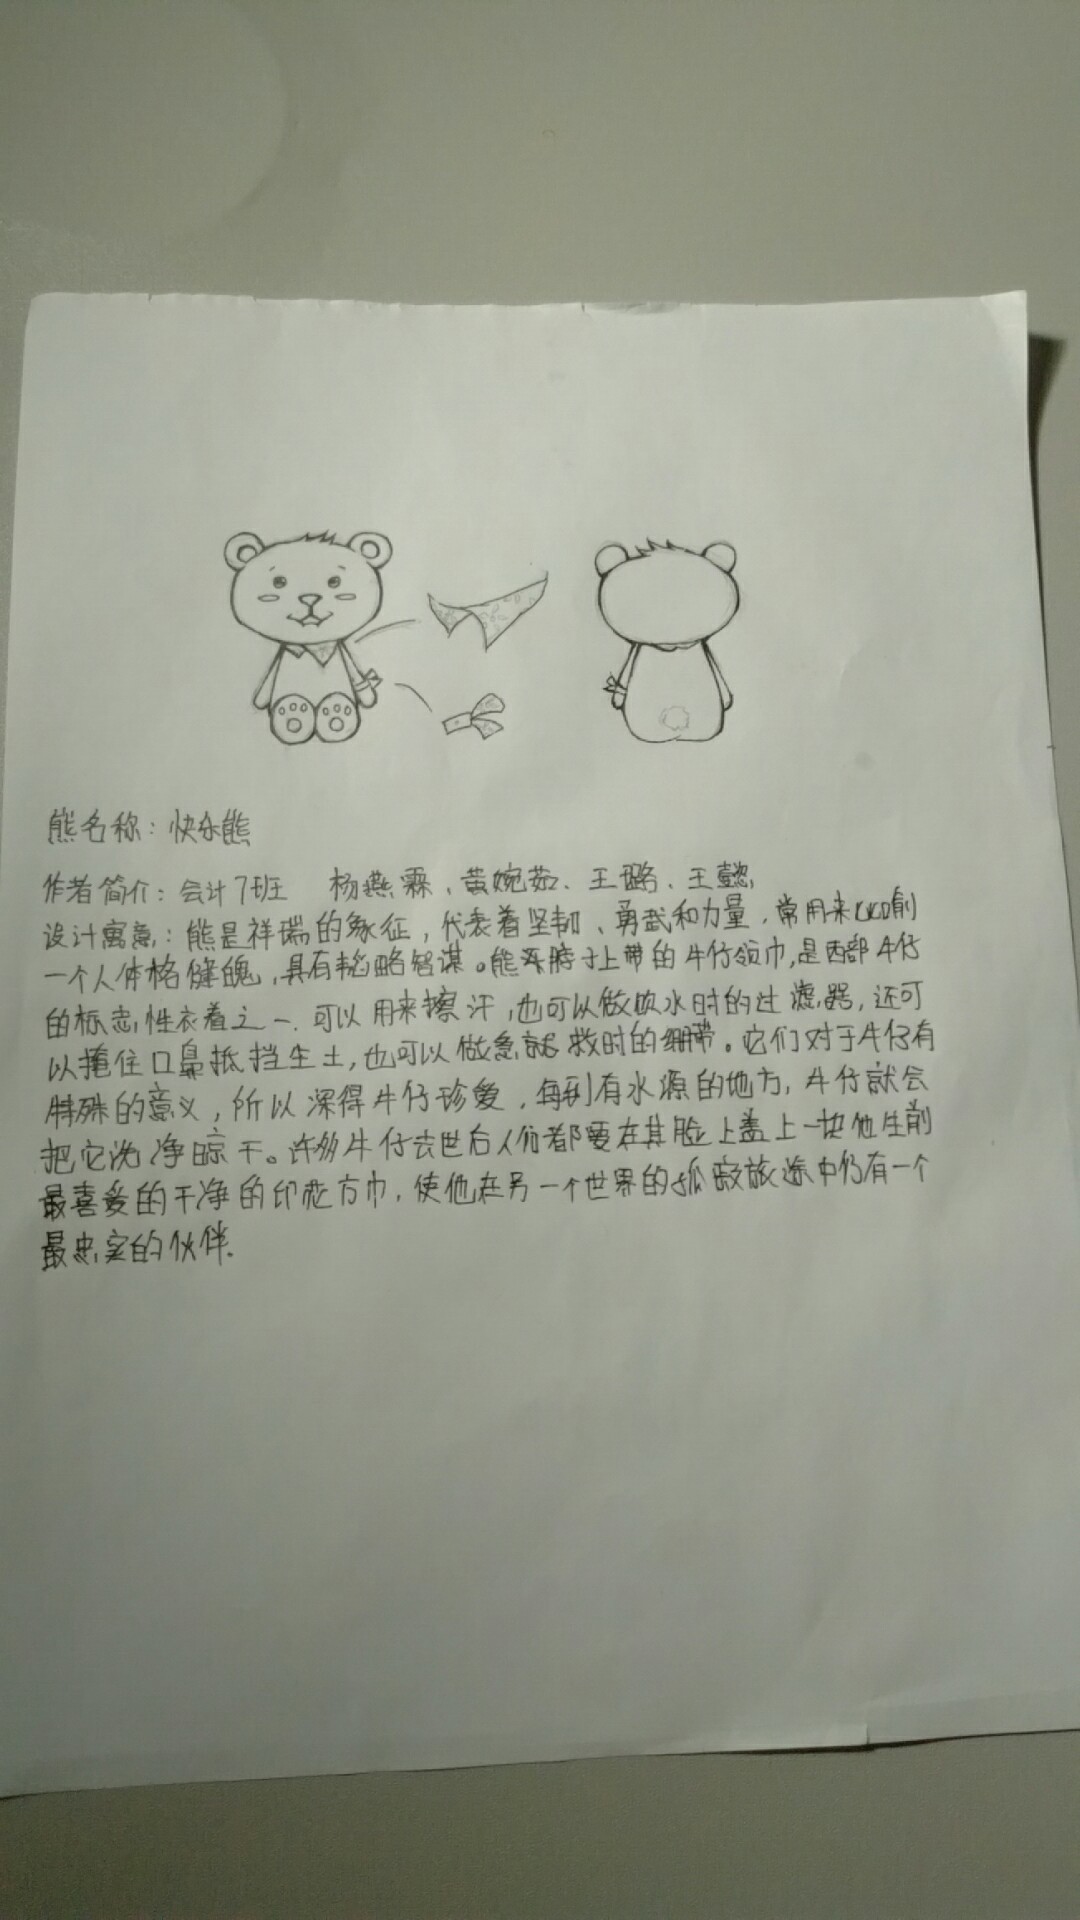 熊名称：快乐熊
作者简介：会计7班 杨燕霖、黄婉茹、王璐、王懿
设计寓意：熊是祥瑞的象征，代表着坚韧、勇武和力量，常用来
一个人体格健魄，具有韬略智谋。熊脖子上带的牛仔领巾，是西部牛仔
的标志性衣着之一．可以用来擦汗，也可以做饮水时的过滤器，还可
以掩住口鼻抵挡尘土，也可以做急救时的绷带。它们对于牛仔有
特殊的意义，所以深得牛仔珍爱，每到有水源的地方，牛仔就会
把它洗净晾干。许多牛仔去世后人们都要在其脸上盖上一块他生前
最喜爱的干净的印花方巾，使他在另一个世界的孤寂旅途中仍有一个
最忠实的伙伴．